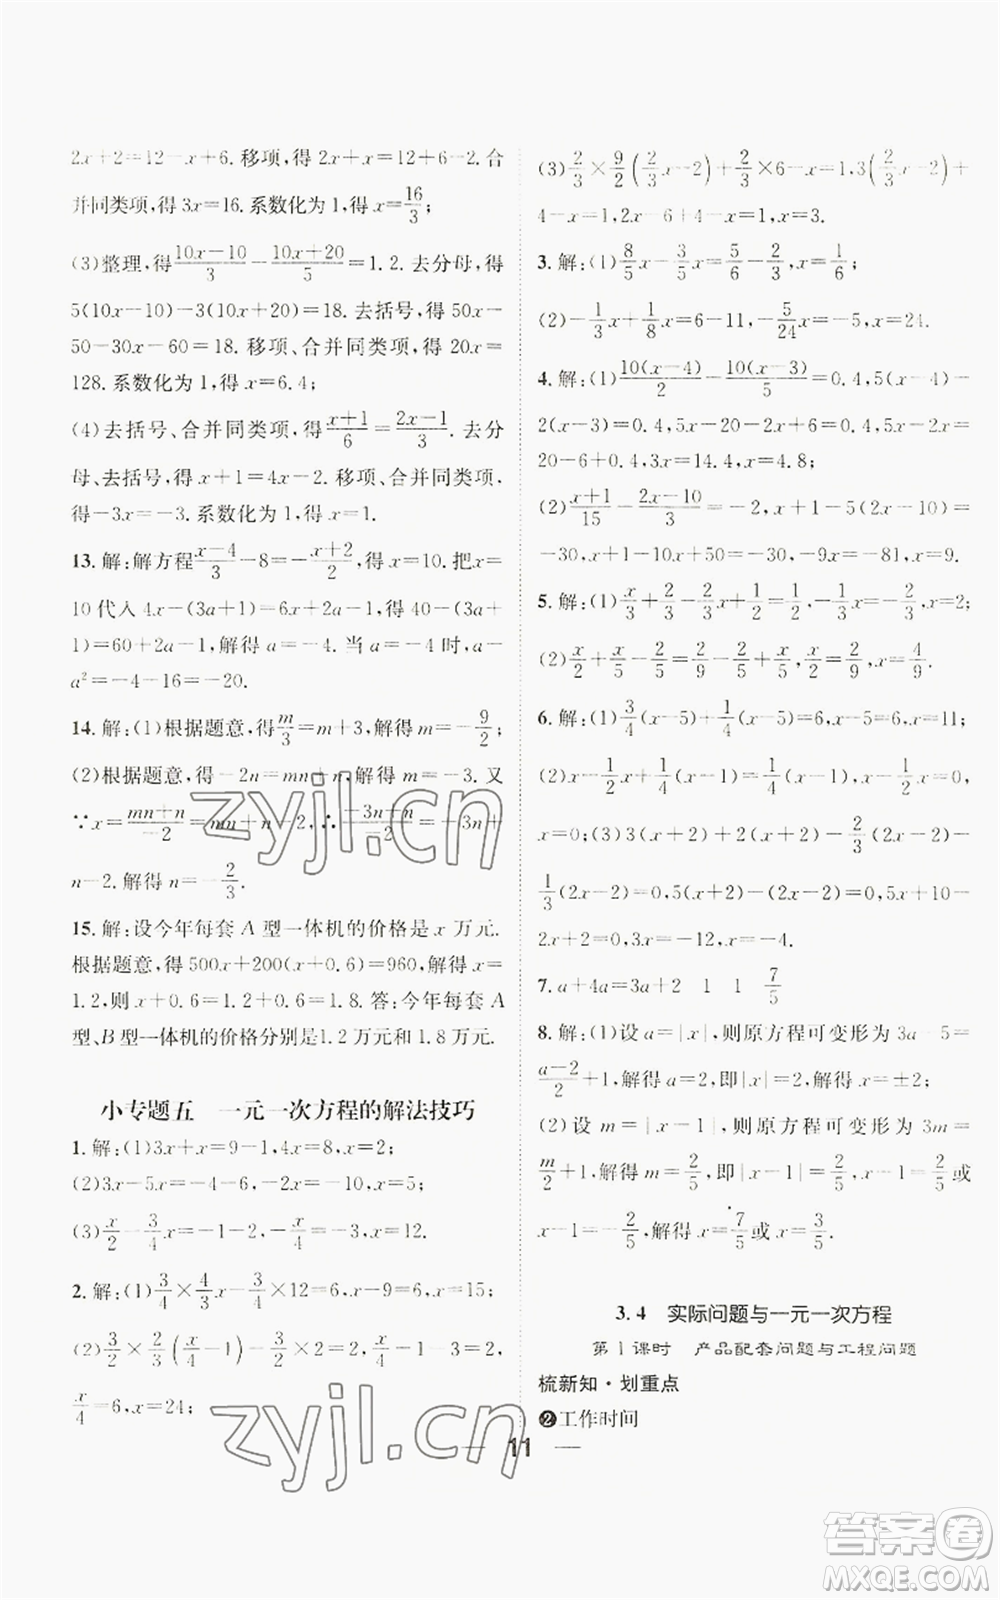 2x+2=12-x+6. 移项,得 2x+x=12+6-2. 合
并同类项,得 3x=16. 系数化为 1,得 x=16/3;
(3)整理,得(10x-10)/3-(10x+20)/5=1.2. 去分母,得
5(10x-10)-3(10x+20)=18. 去括号,得 50x
-50-30x-60=18. 移项、合并同类项,得 20x=
128. 系数化为 1,得 x=6.4;
(4)去括号、合并同类项,得(x+1)/6=(2x-1)/3. 去分
母、去括号,得 x+1=4x-2. 移项、合并同类项,
得-3x=-3. 系数化为 1,得 x=1.
13. 解:解方程(x-4)/3-8=-(x+2)/2,得 x=10. 把 x=
10 代入 4x-(3a+1)=6x+2a-1,得 40-(3a+
1)=60+2a-1,解得 a=-4. 当 a=-4 时,a-
a²=-4-16=-20.
14. 解:(1)根据题意,得m/3=m+3,解得 m=-9/2;
(2)根据题意,得-2n=mn+n,解得 m=-3. 又
∵x=(mn+n)/(-2)=mn+n-2,∴(-3n+n)/(-2)=-3n+
n-2. 解得 n=-2/3.
15. 解:设今年每套 A 型一体机的价格是 x 万元.
根据题意,得 500x+200(x+0.6)=960,解得 x=
1.2,则 x+0.6=1.2+0.6=1.8. 答:今年每套 A
型、B 型一体机的价格分别是1.2 万元和 1.8 万元.
小专题五 一元一次方程的解法技巧
1. 解:(1)3x+x=9-1,4x=8,x=2;
(2)3x-5x=-4-6,-2x=-10,x=5;
(3)x/2-3/4x=-1-2,-x/4=-3,x=12.
2. 解:(1)3/4×4/3x-3/4×12=6,x-9=6,x=15;
(2)3/2×2/3(x/4-1)-3/2×2-x=2,x/4-1-3-x=2,
x/4=6,x=24;
(3)2/3×9/2(2/3x-2)+2/3×6-x=1,3(2/3x-2)+
4-x=1,2x-6+4-x=1,x=3.
3. 解:(1)8/5x-3/5x=5/6-2/3,x=1/6;
(2)-1/3x+1/8x=6-11,-5/24x=-5,x=24.
4. 解:(1)10(x-4)/2-10(x-3)/5=0.4,5(x-4)-
2(x-3)=0.4,5x-20-2x+6=0.4,5x-2x=
20-6+0.4,3x=14.4,x=4.8;
(2)(x+1)/15-(2x-10)/3=-2,x+1-5(2x-10)=
-30,x+1-10x+50=-30,-9x=-81,x=9.
5. 解:(1)x/3+2/3-2/3x+1/2=1/2,-1/3x=-2/3,x=2;
(2)x/2+x/5-2/5=2/9-2/5+x/5,x/2=2/9,x=4/9.
6. 解:(1)3/4(x-5)+1/4(x-5)=6,x-5=6,x=11;
(2)x-1/2x+1/4x-1/4x=0,x-1/2x=0,1/2x=0,
x=0;(3)3(x+2)+2(x+2)-2/3(2x-2)-
1/3(2x-2)=0,5(x+2)-(2x-2)=0,5x+10-
2x+2=0,3x=-12,x=-4.
7. a+4a=3a+2 1 1 7/5
8. 解:(1)设 a=|x|,则原方程可变形为 3a-5=
(a-2)/2+1,解得 a=2,即|x|=2,解得 x=±2;
(2)设 m=|x-1|,则原方程可变形为 3m=
m/2+1,解得 m=2/5,即|x-1|=2/5,x-1=2/5或
x-1=-2/5,解得 x=7/5或 x=3/5.
3.4 实际问题与一元一次方程
第 1 课时 产品配套问题与工程问题
梳新知·划重点
❷工作时间
11
zyjl.cn
zyjl.cn
答案圈
MXQE.COM